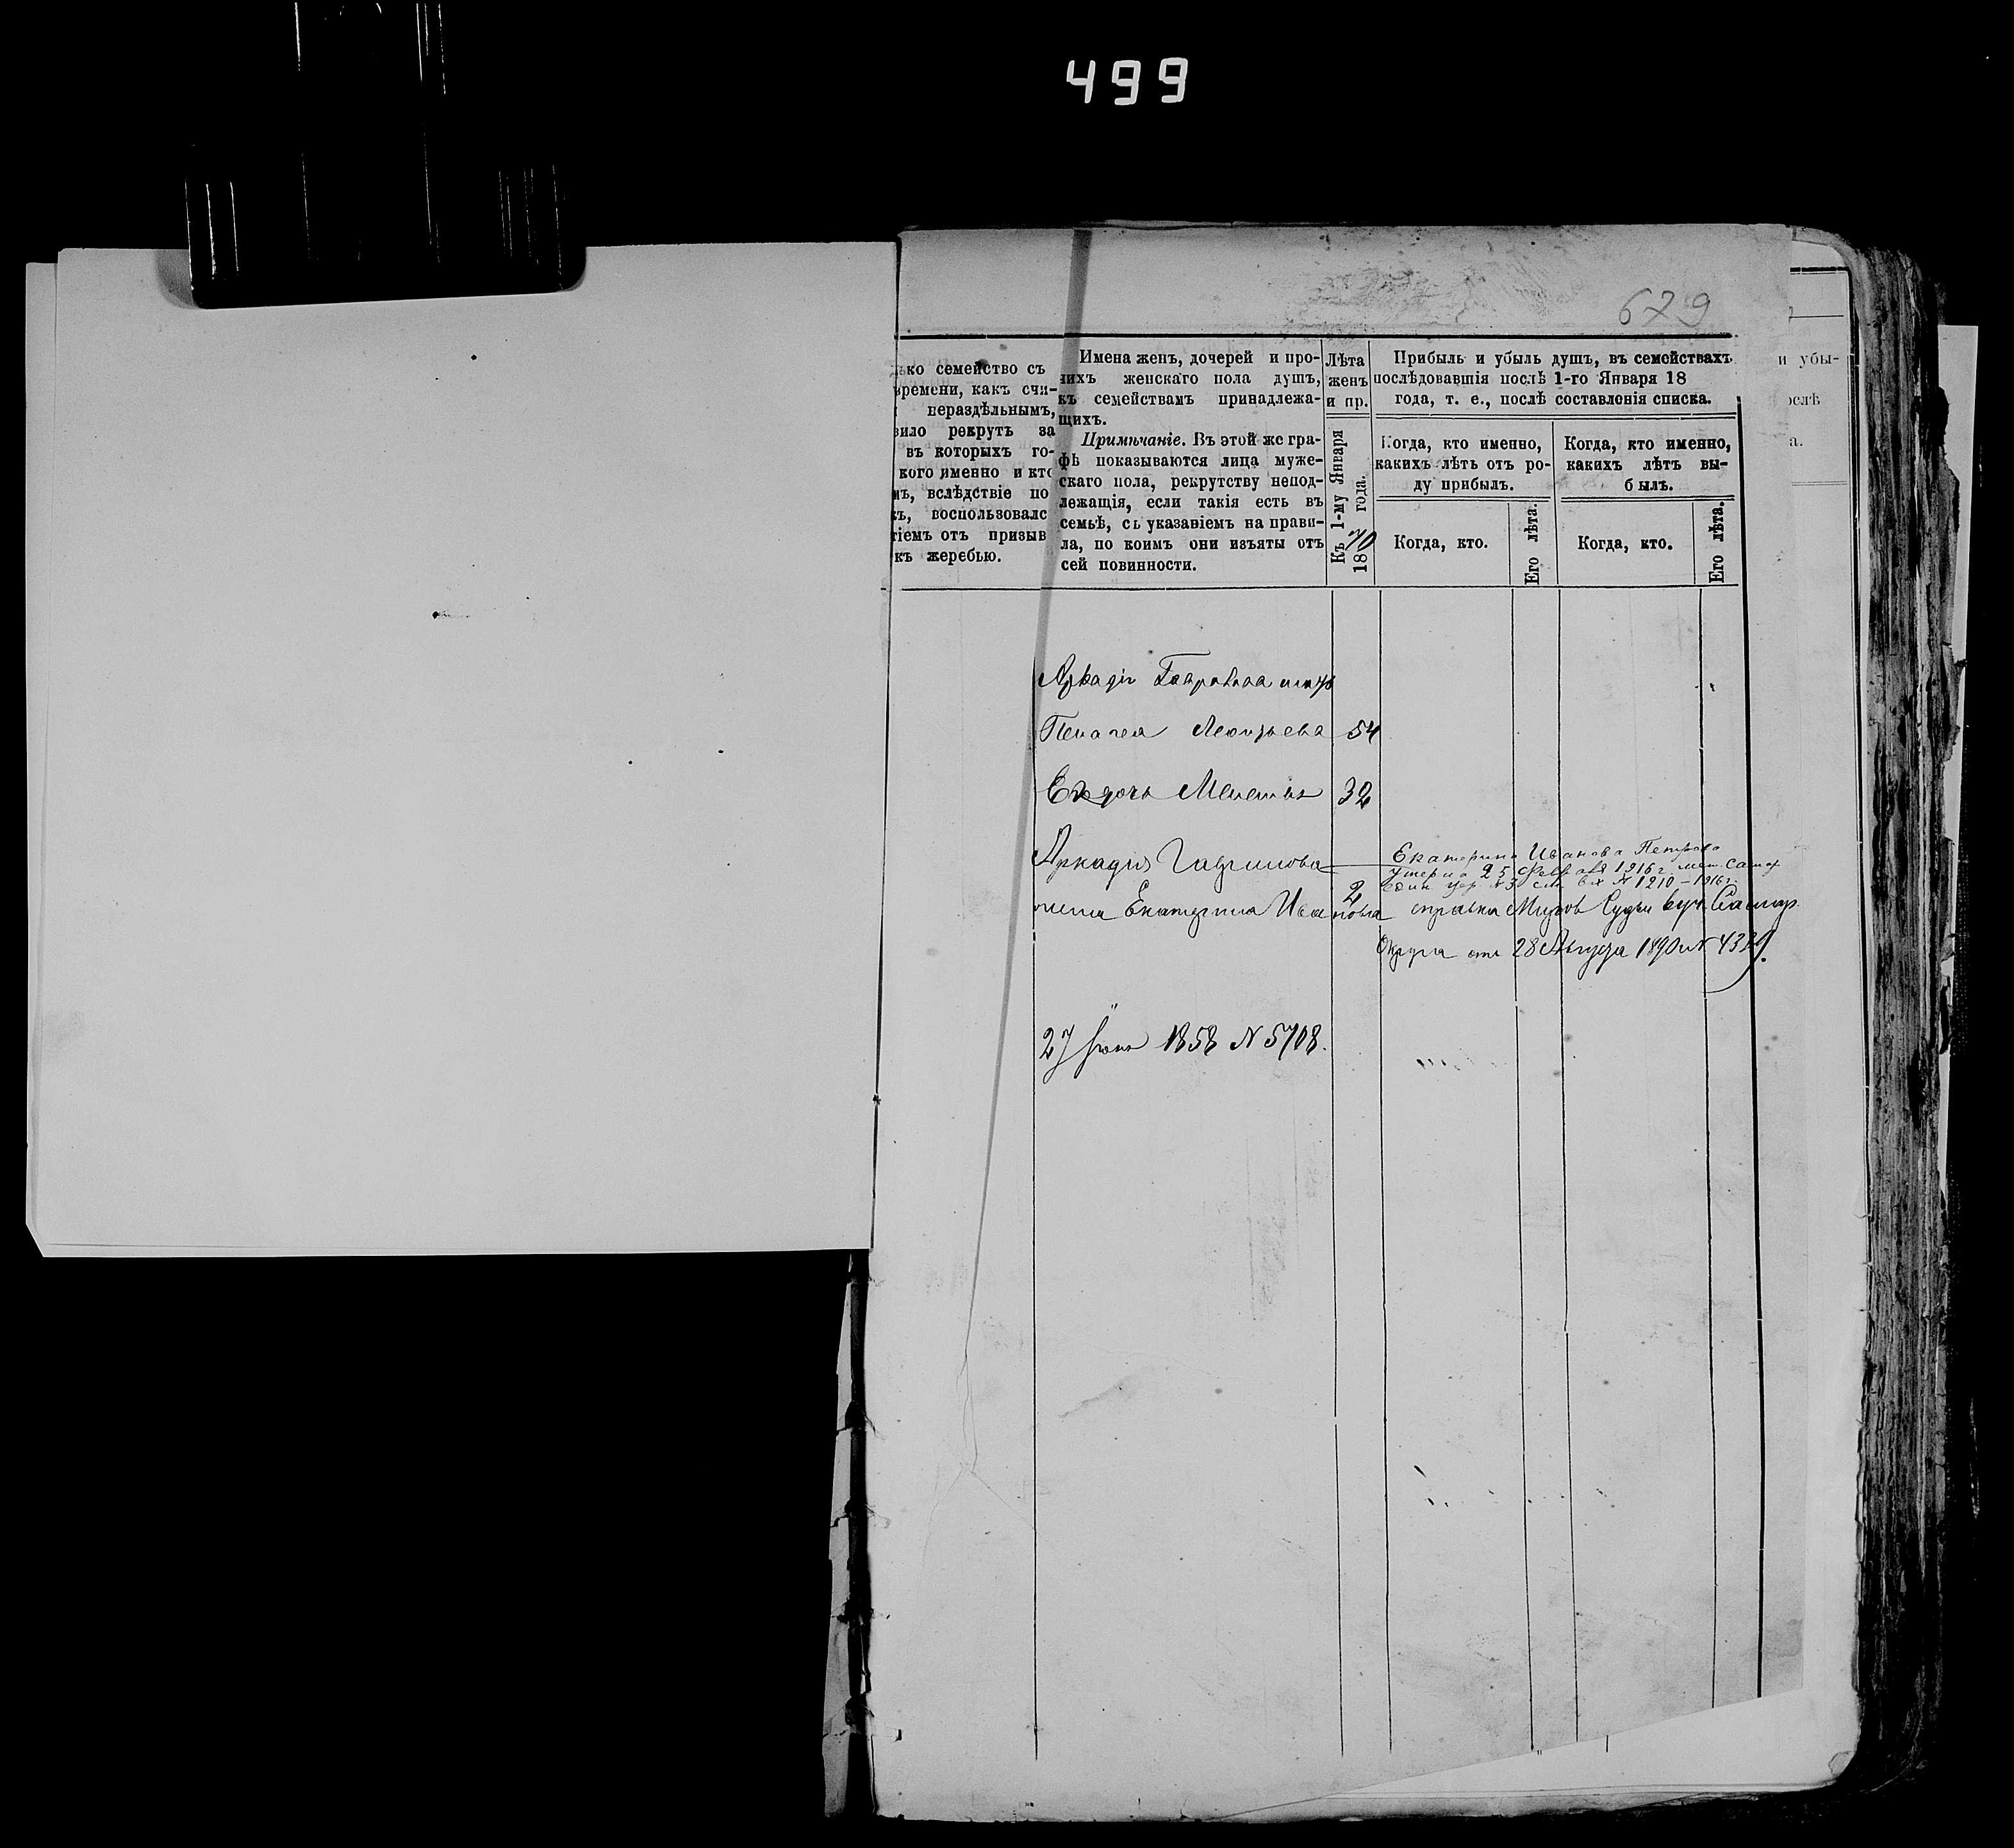 499
679
ко семейство съ
времени, какъ счи-
нераздѣльнымъ,
вило рекрутъ за
въ которыхъ го-
кого именно и кто
мъ, вслѣдствіе по
ъ, воспользовалс
тіемъ отъ призыв
къ жеребью.
Имена женъ, дочерей и про-
чихъ женскаго пола душъ,
къ семействамъ принадлежа-
щихъ.
Примѣчаніе. Въ этой же гра-
фѣ показываются лица муже-
скаго пола, рекрутству непод-
лежащія, если такія есть въ
семьѣ, съ указаніемъ на прави-
ла, по коимъ они изъяты отъ
сей повинности.
Лѣта
женъ
и пр.
Къ 1-му Января
1870 года.
Прибыль и убыль душъ, въ семействахъ
послѣдовавшія послѣ 1-го Января 18
года, т. е., послѣ составленія списка.
Когда, кто именно,
какихъ лѣтъ отъ ро-
ду прибылъ.
Когда, кто.
Его лѣта.
Когда, кто именно,
какихъ лѣтъ вы-
былъ.
Когда, кто.
Его лѣта.
и убы-
ослѣ
а.
Аркадія Гаврилова
Пелагея Леонтьева 54
32
Аркадія Гаврилова
жена Екатерина Ивановна 2
Екатерина Иванова Петрова
умерла 25 Февраля 1916 г.
№ 1210 - 1916 г.
справка Миров Судьи 6 уч. Самар.
Округа отъ 28 Августа 1890 №
27 Іюня 1858 N 5708.